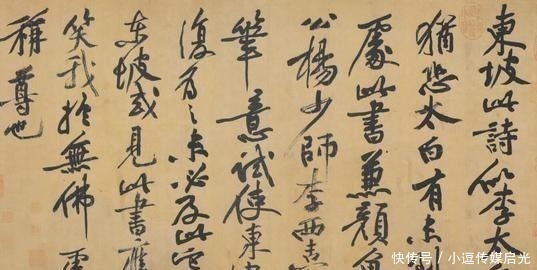 東坡此詩似李太
猶恐太白有未
處此書兼顏
公楊少師李西
筆意試使東
復為之未必及此
東坡或見此書應
笑我於無佛處
稱尊也
快传号 / 小逗传媒启光